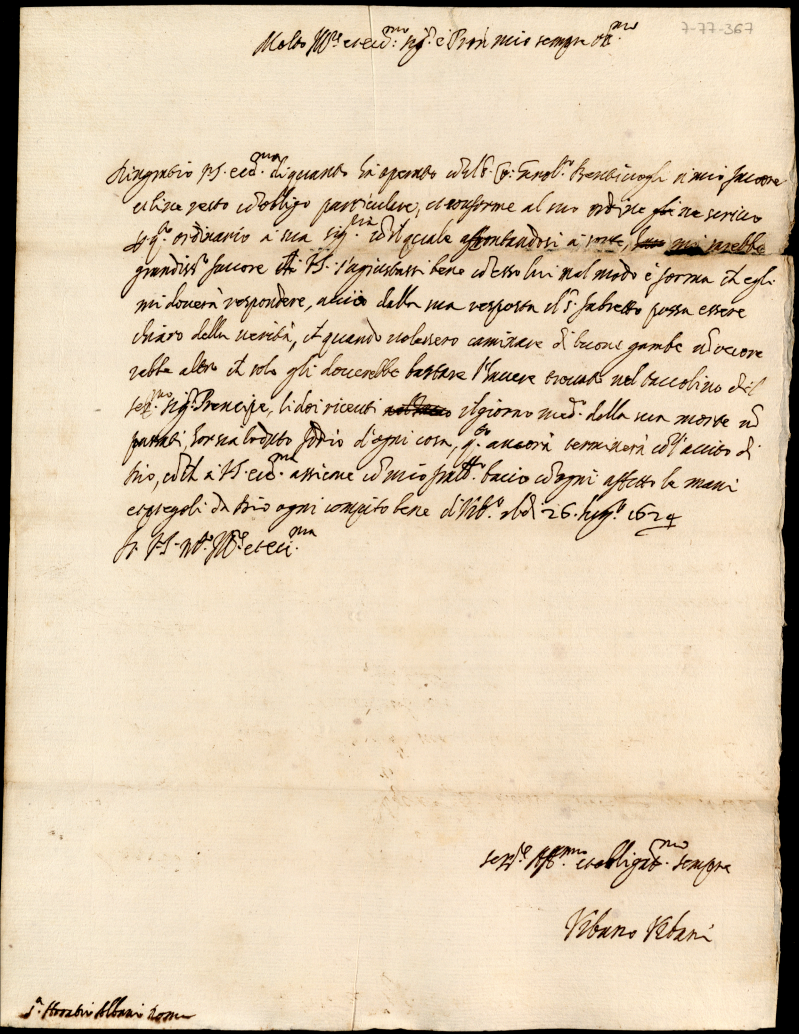 7-77-367
Molto Ill.re et ecc.mo sig.r e Pron mio sempre oss.mo
Ringratio V.S. ecc.ma di quanto hà operato con il S. Co: Bentivogli à mio favore
et line resto con obligo particulare, et conforme al suo ordine ne scrivo
p q.o ordinario à sua sig.ria con il quale affrontandosi à sorte, mi sarebbe
grandiss.o favore che V.S. s'agiustassi bene con esso lui nel modo è forma ch egli
mi doverà respondere, acciò dalla sua resposta il S. fabretto possa essere
chiaro della verità, et quando volessero caminare di buone gambe nõ occore
rebbe altro ch solo gli doverebbe bastare l'havere trovato nel taccolino del
ser.mo sig.r Prencipe, li doi ricenti il giorno med.o della sua morte nõ
passati, hor sia lodato Iddio d'ogni cosa, q.to ancorà terminerà con l'aiuto di
Dio, con ch à V.S. ecc.ma assieme con mio fratt.o bacio con ogni affetto le mani
et pregoli da Dio ogni compito bene di Urb.o li 26. 1624
Di V.S. m.to Ill.re et ecc.ma
ser.re Aff.mo et obligat.mo sempre
Urbano Urbani
S.r Horatio Albani Roma